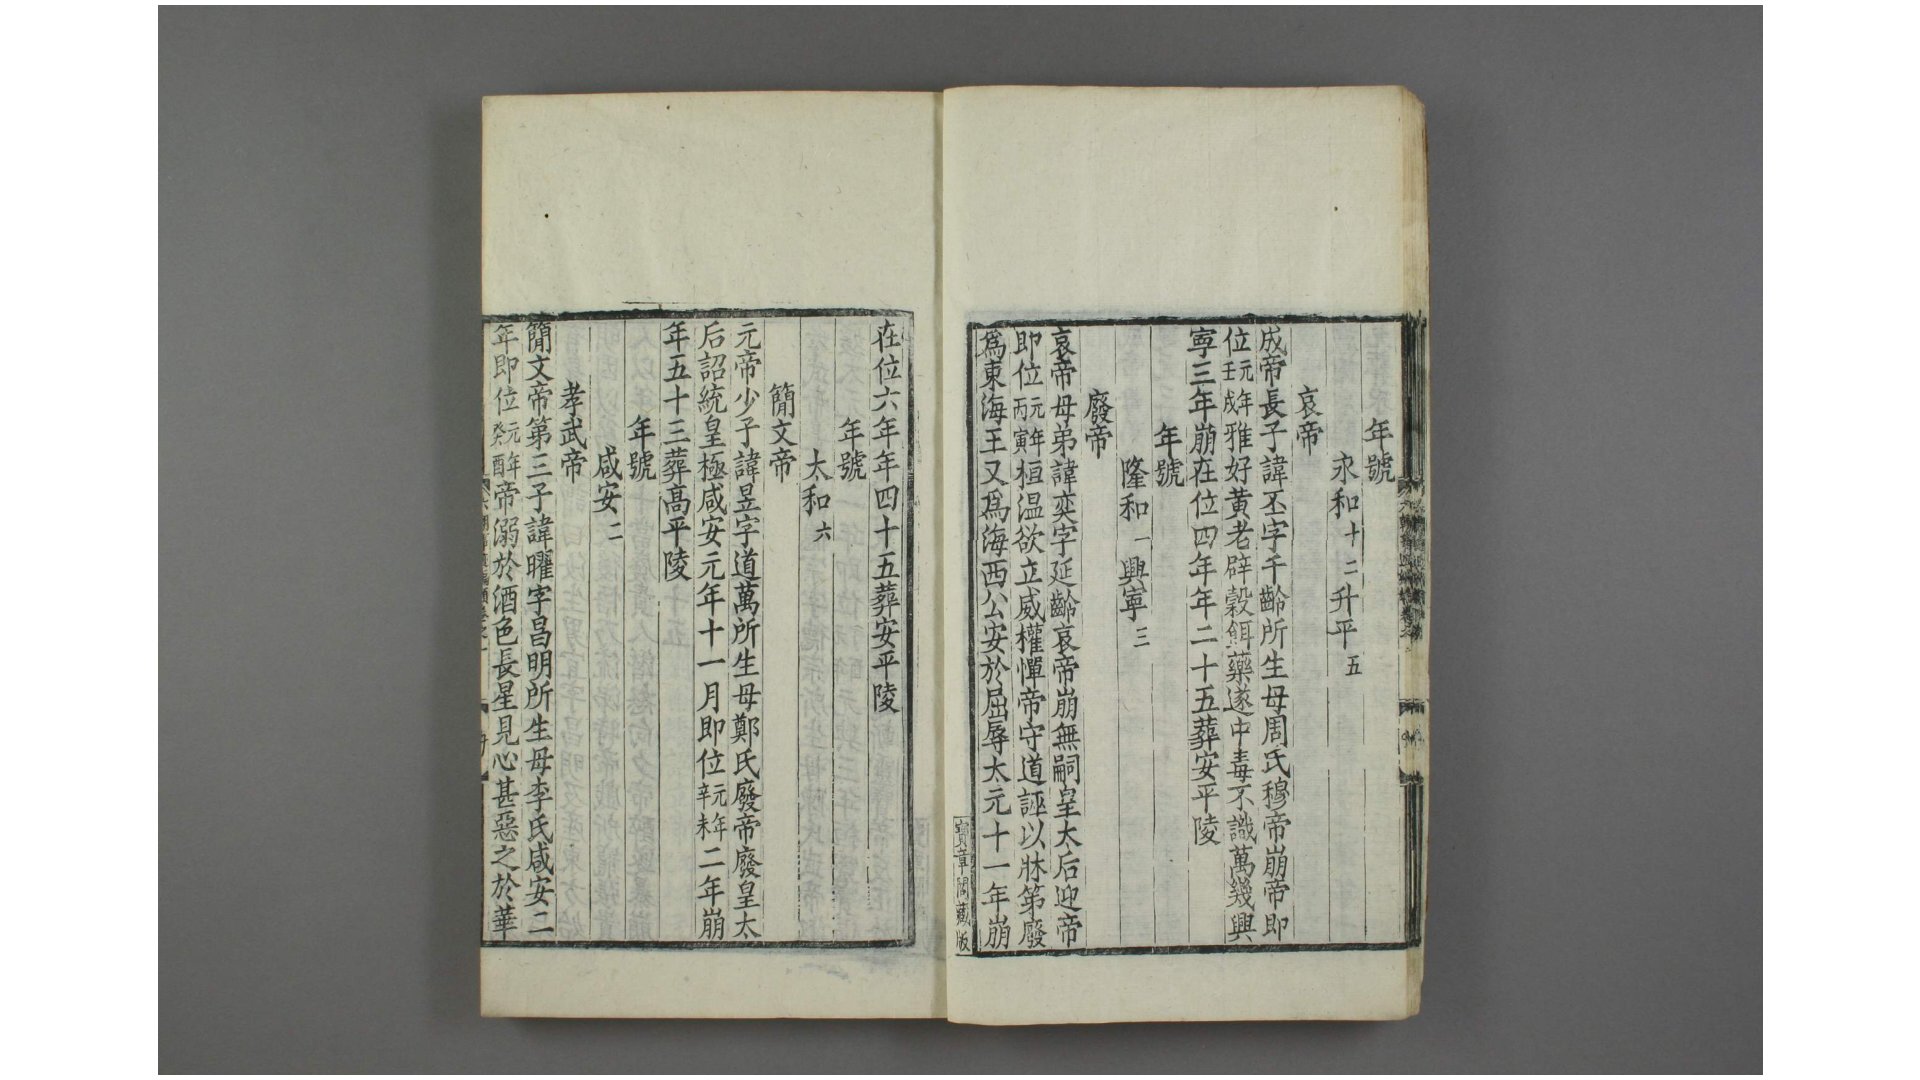 年號
永和十二升平五
哀帝
成帝長子諱丕字千齡所生母周氏穆帝崩帝即
位元年壬戌雅好黃老辟穀餌藥遂中毒不識萬幾興
寧三年崩在位四年年二十五葬安平陵
年號
隆和一興寧三
廢帝
哀帝母弟諱奕字延齡哀帝崩無嗣皇太后迎帝
即位元年丙寅桓温欲立威權憚帝守道誣以牀第廢
爲東海王又爲海西公安於屈辱太元十一年崩
寶章閣藏版
在位六年年四十五葬安平陵
年號
太和六
簡文帝
元帝少子諱昱字道萬所生母鄭氏廢帝廢皇太
后詔統皇極咸安元年十一月即位元年辛未二年崩
年五十三葬高平陵
年號
咸安二
孝武帝
簡文帝第三子諱曜字昌明所生母李氏咸安二
年即位元年癸酉帝溺於酒色長星見心甚惡之於華